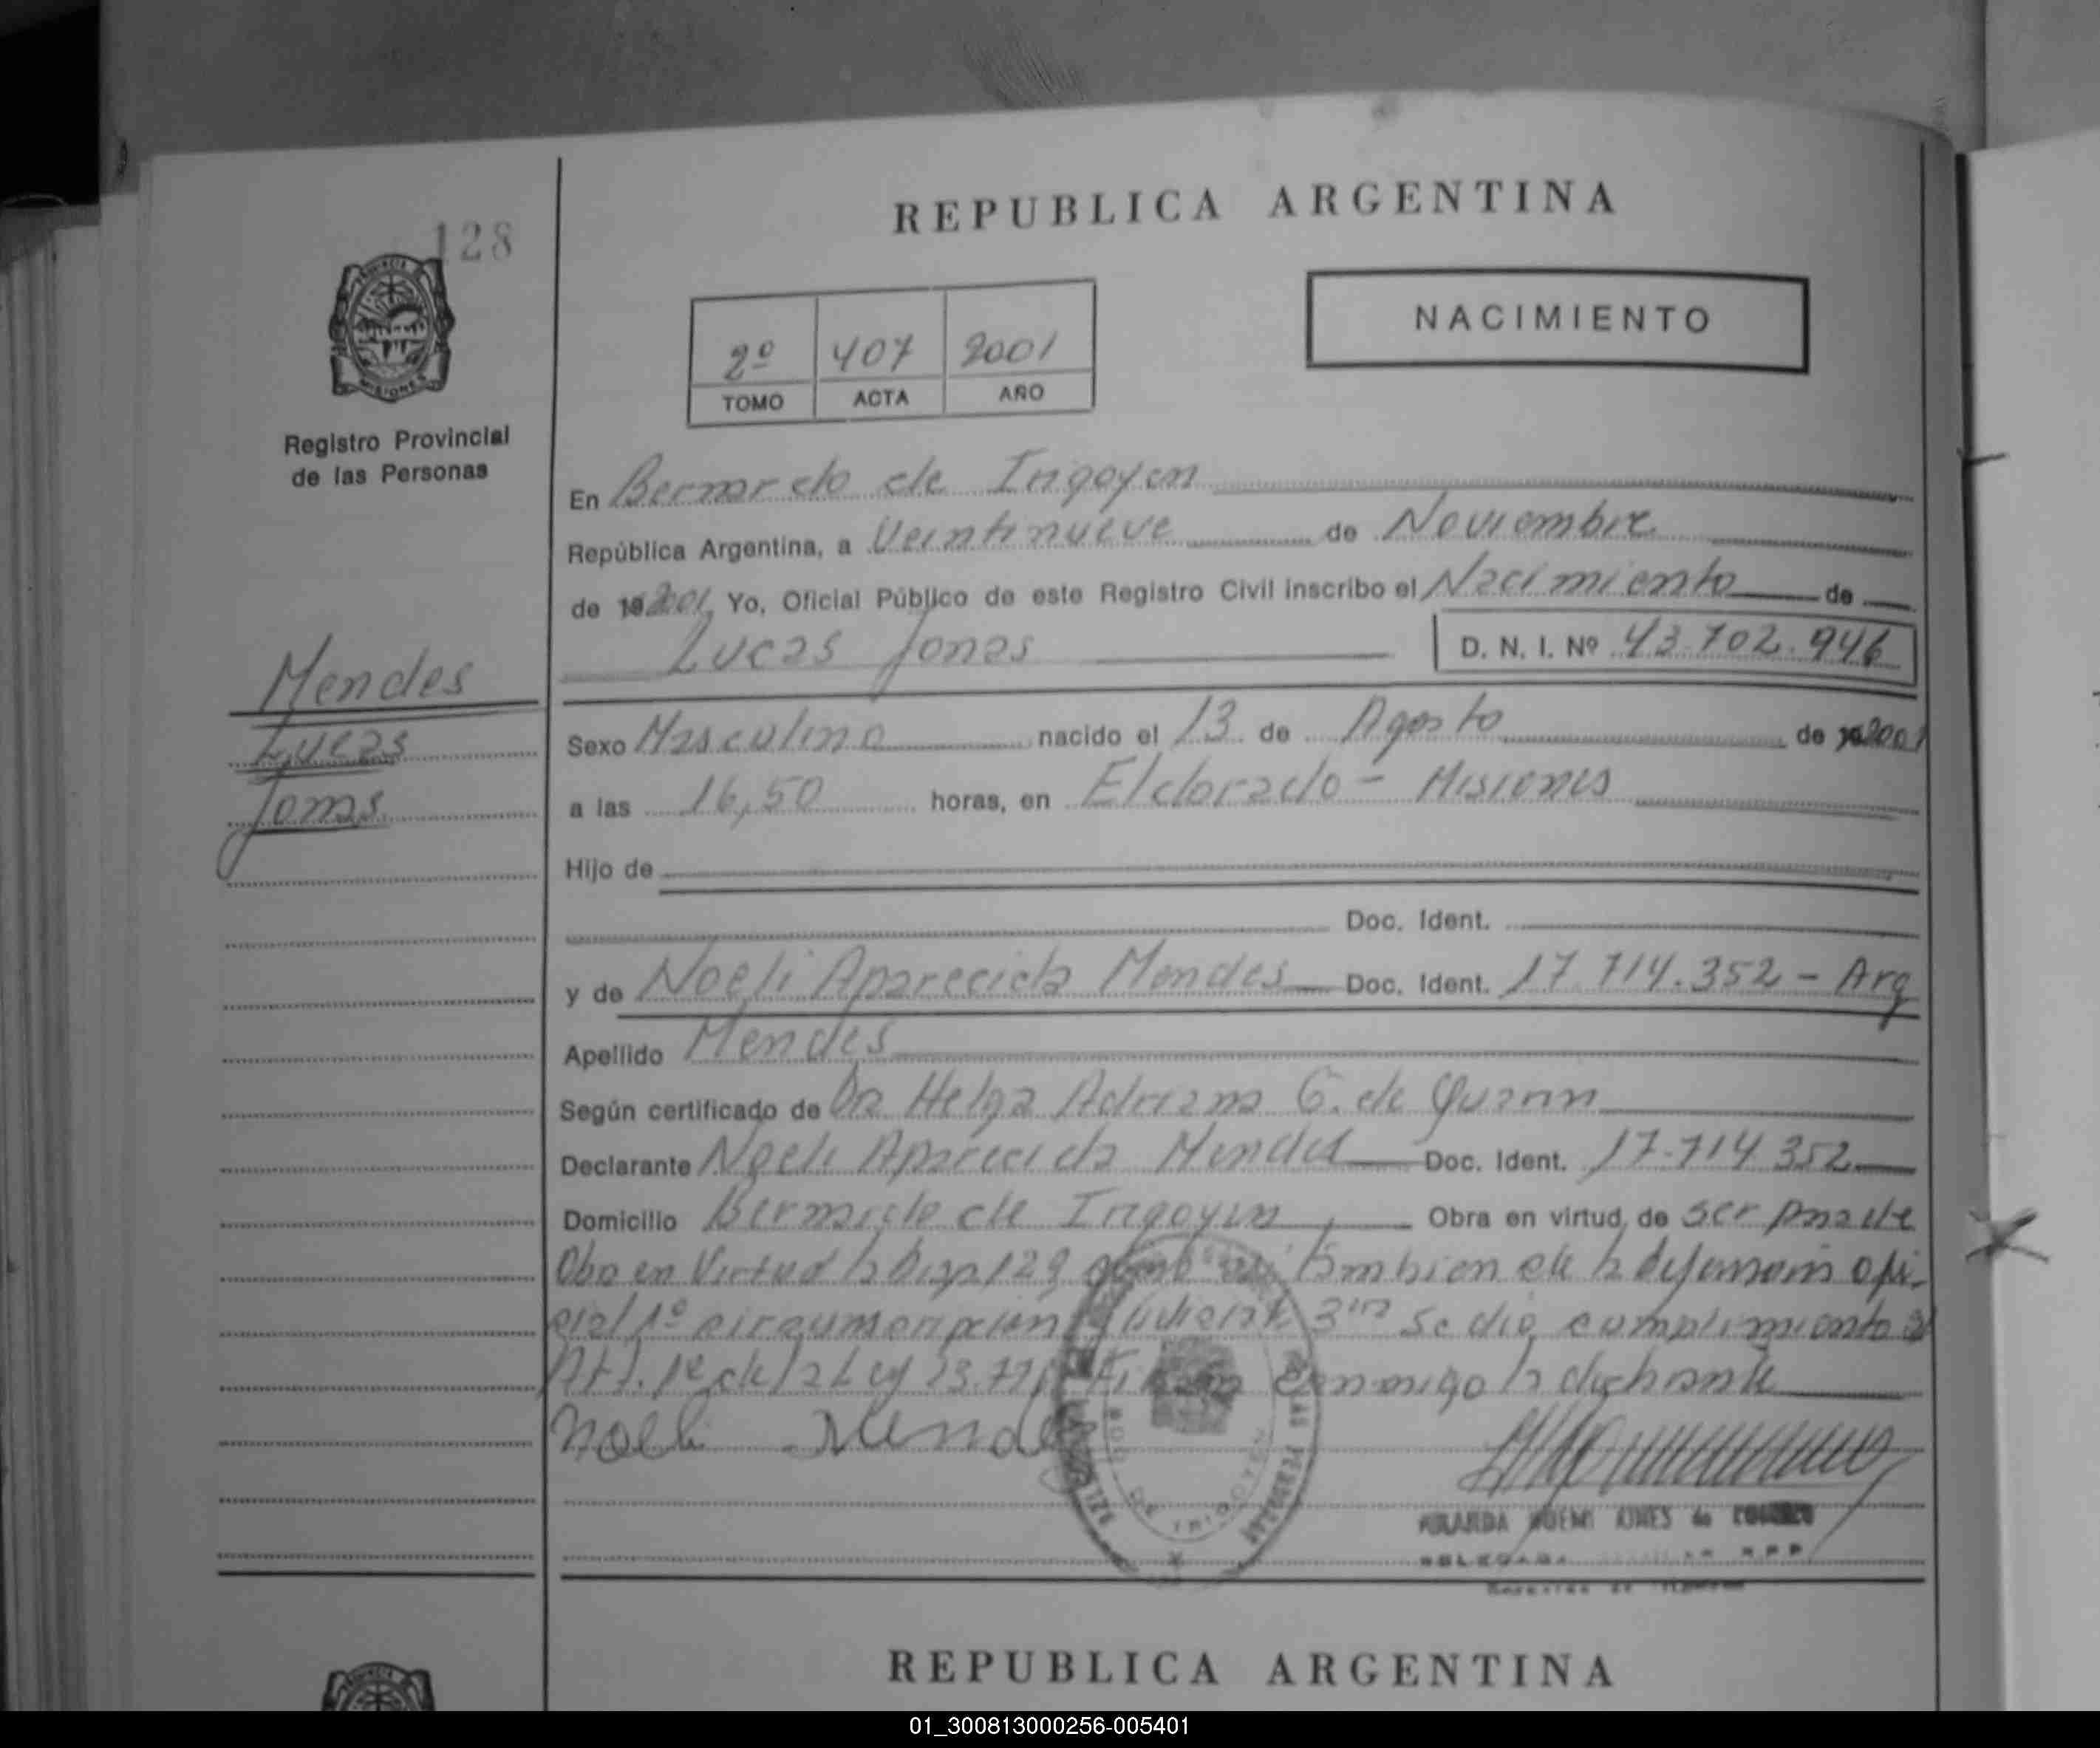 128
REPUBLICA ARGENTINA
NACIMIENTO
2º 407 2001
TOMO ACTA AÑO
Registro Provincial
de las Personas
En Bernardo de Irigoyen
República Argentina, a Veintinueve de Noviembre
de 192001, Yo, Oficial Público de este Registro Civil inscribo el Nacimiento de
Lucas Jonas D. N. I. Nº 43.702.946
Mendes
Lucas
Jonas
Sexo Masculino nacido el 13 de Agosto de 192001
a las 16,50 horas, en Eldorado - Misiones
Hijo de
Doc. Ident.
y de Noeli Aparecida Mendes Doc. Ident. 17.714.352 - Arg
Apellido Mendes
Según certificado de Dra Helga Adriana G. de
Declarante Noeli Aparecida Mendes Doc. Ident. 17.714.352
Domicilio Bernardo de Irigoyen, Obra en virtud de ser madre
Obra en Virtud la Disp 129 tambien de la defensoria ofi-
cial 1º circunscripcion Se dio cumplimiento al
Art. 1º de la Ley 23.776 Firma conmigo la declarante
Noeli Mendes
DE IRIGOYEN
NOEMI de
REPUBLICA ARGENTINA
01_300813000256-005401